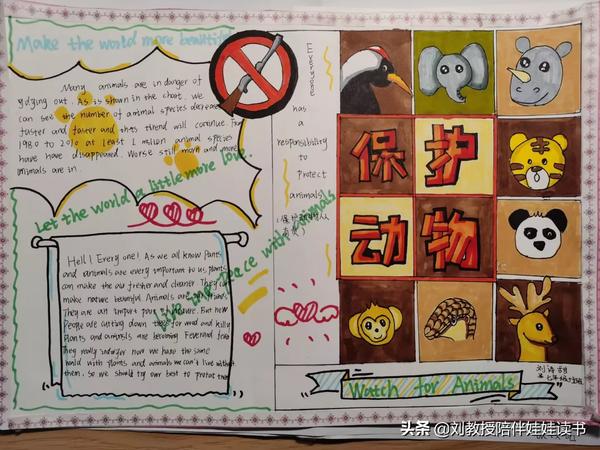 Make the world more beautiful
Many animals are in danger of
dying out. As is shown in the chart. We
can see the number of animal species decrease
faster and faster and this trend will continue from
1980 to 2010 at least 1 million animal species
have have disappeared. Worse still more and more
animals are in.
Let the world a little more love
Hell! Every one! As we all know Pants
and animals are every important to us. plants
can make the air fresher and cleaner They can
make nature beautiful Animals are our friends.
They are an import part nature. But now
People are cutting down trees for wood and killy
Plants and animals are becoming
They really
world with Plants and animals we can't live without
them. So we should try our best to protect them
living space with animals
Everyone
has a
responsibility
to
Protect
animals
保护
动物
Watch for Animals
头条 @刘教授陪伴娃娃读书